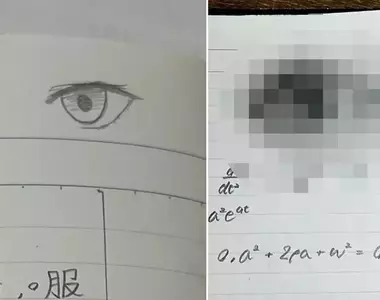 服
d
dt²
a²e^at
0, a² + 2ρa + w² =